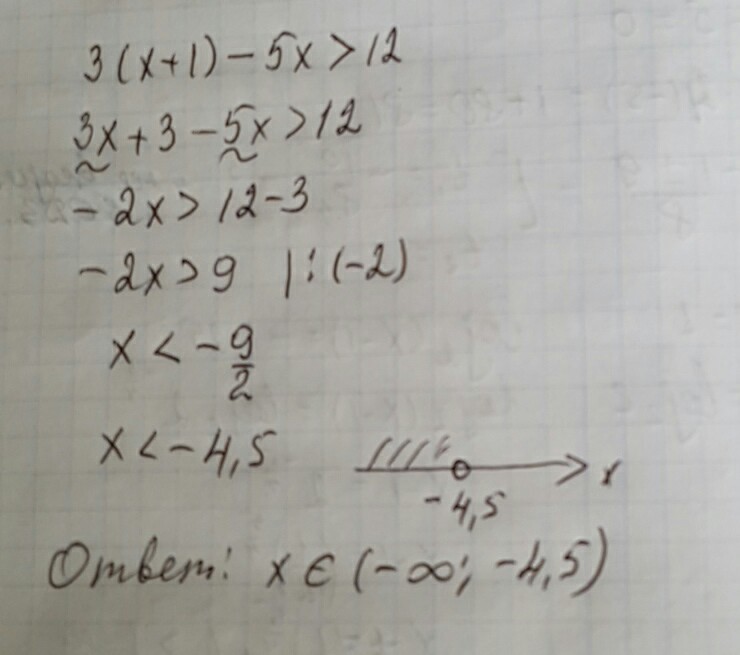 3(x+1)-5x>12
3x+3-5x>12
-2x>12-3
-2x>9 |:(-2)
x<-9/2
x<-4,5
-4,5 x
Ответ: x∈(-∞; -4,5)